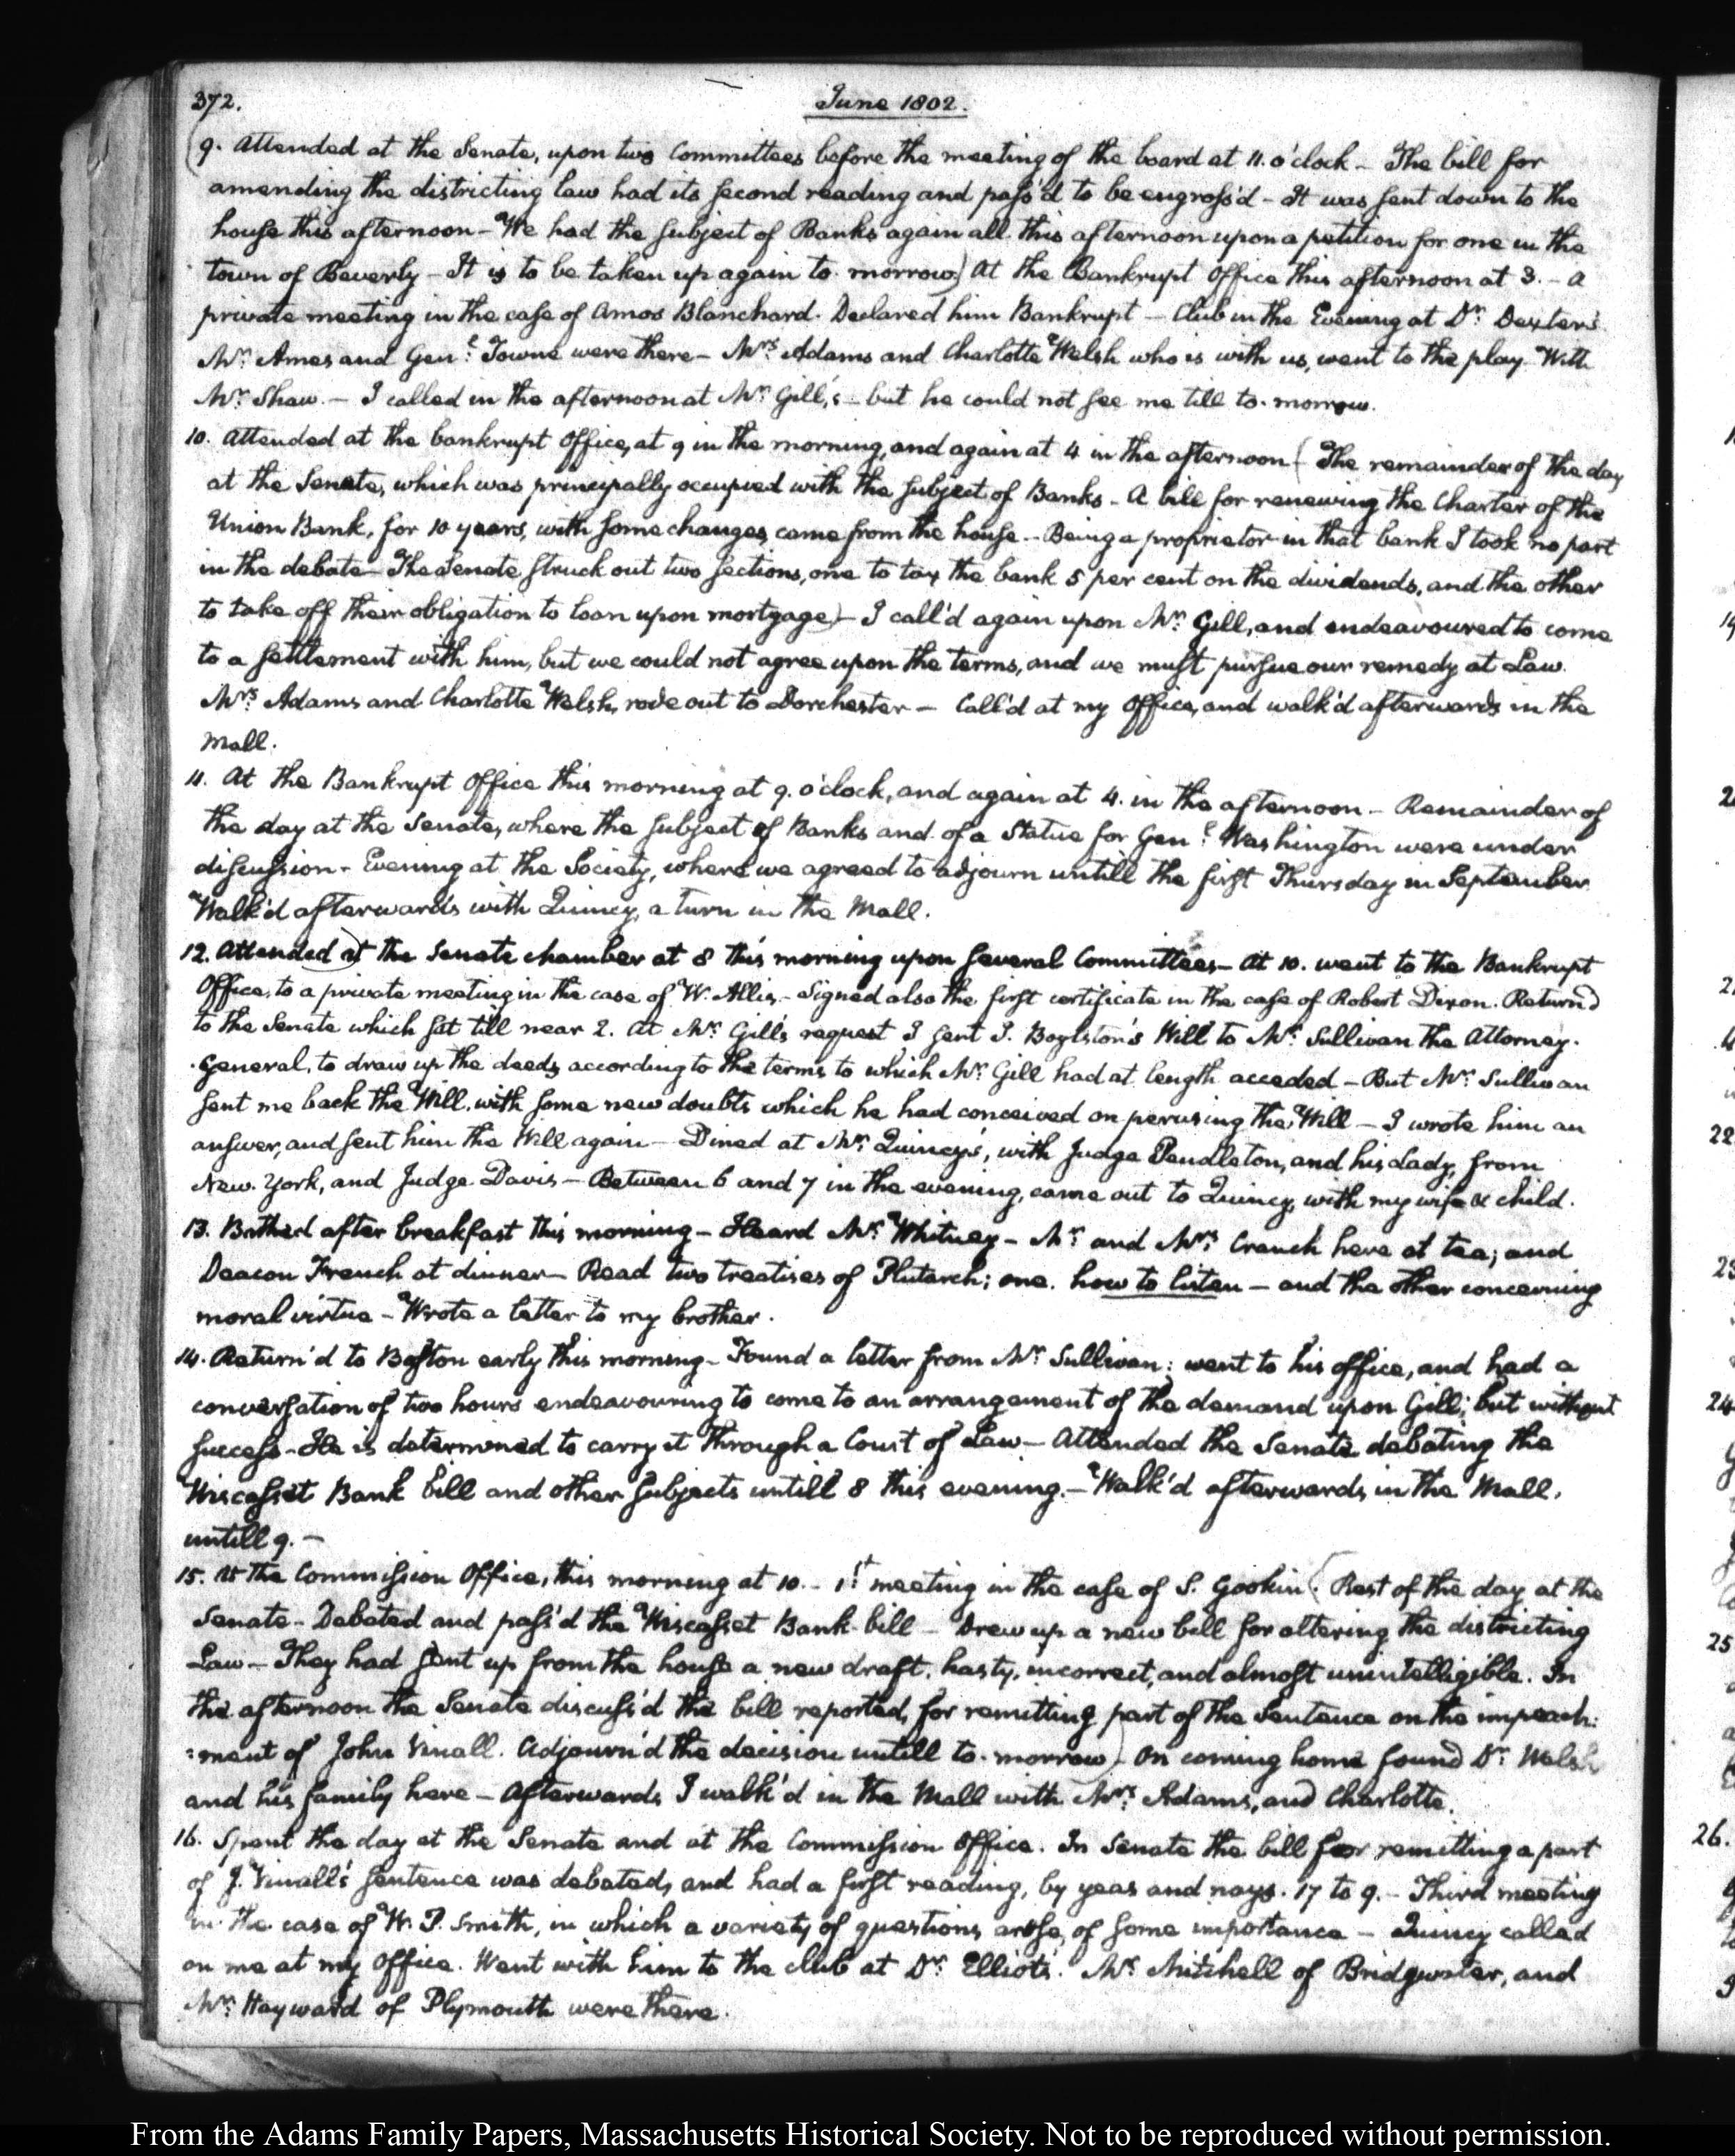 372.
June 1802.
(9. Attended at the Senate, upon two Committees before the meeting of the board at 11. o'clock - The bill for
amending the districting law had its second reading and pass'd to be engross'd - It was sent down to the
house this afternoon - We had the subject of Banks again all this afternoon upon a petition for one in the
town of Beverly - It is to be taken up again to-morrow) At the Bankrupt Office this afternoon at 3. - A
private meeting in the case of Amos Blanchard. Declared him Bankrupt - Club in the Evening at Dr. Dexter's
Mr. Ames and Genl. Towne were there - Mrs. Adams and Charlotte Welsh who is with us, went to the play With
Mr. Shaw. - I called in the afternoon at Mr. Gill's - but he could not see me till to-morrow.
10. Attended at the bankrupt Office, at 9 in the morning, and again at 4 in the afternoon (The remainder of the day
at the Senate, which was principally occupied with the subject of Banks - A bill for renewing the Charter of the
Union Bank, for 10 years, with some changes, came from the house - Being a proprietor in that bank I took no part
in the debate - The Senate struck out two sections, one to tax the bank 5 per cent on the dividends, and the other
to take off their obligation to loan upon mortgage) - I call'd again upon Mr. Gill, and endeavoured to come
to a settlement with him, but we could not agree upon the terms, and we must pursue our remedy at Law.
Mrs. Adams and Charlotte Welsh, rode out to Dorchester - Call'd at my Office, and walk'd afterwards in the
Mall.
11. At the Bankrupt Office this morning at 9. o'clock, and again at 4. in the afternoon - Remainder of
the day at the Senate, where the subject of Banks and of a Statue for Genl. Washington were under
discussion - Evening at the Society, where we agreed to adjourn untill the first Thursday in September
Walk'd afterwards with Quincy, a turn in the Mall.
12. Attended) at the Senate chamber at 8 this morning upon several Committees - At 10. went to the Bankrupt
Office, to a private meeting in the case of W. Allis - Signed also the first certificate in the case of Robert Dixon. Return'd
to the Senate which sat till near 2. At Mr. Gill's request I sent T. Boylston's Will to Mr. Sullivan the Attorney-
General, to draw up the deeds according to the terms to which Mr. Gill had at length acceded - But Mr. Sullivan
sent me back the Will, with some new doubts which he had conceived on perusing the Will - I wrote him an
answer, and sent him the Will again - Dined at Mr. Quincy's, with Judge Pendleton, and his Lady, from
New York, and Judge Davis - Between 6 and 7 in the evening, came out to Quincy, with my wife & child.
13. Bathed after breakfast this morning - Heard Mr. Whitney - Mr. and Mrs. Cranch here at tea; and
Deacon French at dinner - Read two treatises of Plutarch; one. how to listen - and the other concerning
moral virtue - Wrote a letter to my brother.
14. Return'd to Boston early this morning - Found a letter from Mr. Sullivan: went to his office, and had a
conversation of two hours endeavouring to come to an arrangement of the demand upon Gill; but without
success - He is determined to carry it through a Court of Law - Attended the Senate debating the
Wiscasset Bank bill and other subjects untill 8 this evening. - Walk'd afterwards in the Mall,
untill 9. -
15. At the Commission Office, this morning at 10. - 1st. meeting in the case of S. Gookin (Rest of the day at the
Senate - Debated and pass'd the Wiscasset Bank-bill - Drew up a new bill for altering the districting
Law - They had sent up from the house a new draft, hasty, incorrect, and almost unintelligible. In
the afternoon the Senate discuss'd the bill reported, for remitting part of the Sentence on the impeach:
:ment of John Vinall. Adjourn'd the decision untill to-morrow) On coming home found Dr. Welsh
and his family here - Afterwards I walk'd in the Mall with Mrs. Adams, and Charlotte.
16. Spent the day at the Senate and at the Commission Office. In Senate the bill for remitting a part
of J. Vinall's sentence was debated, and had a first reading, by yeas and nays. 17 to 9. - Third meeting
in the case of W. P. Smith, in which a variety of questions arose, of some importance - Quincy called
on me at my Office. Went with him to the club at Dr. Elliot's. Mr. Mitchell of Bridgwater, and
Mr. Hayward of Plymouth were there.
From the Adams Family Papers, Massachusetts Historical Society. Not to be reproduced without permission.